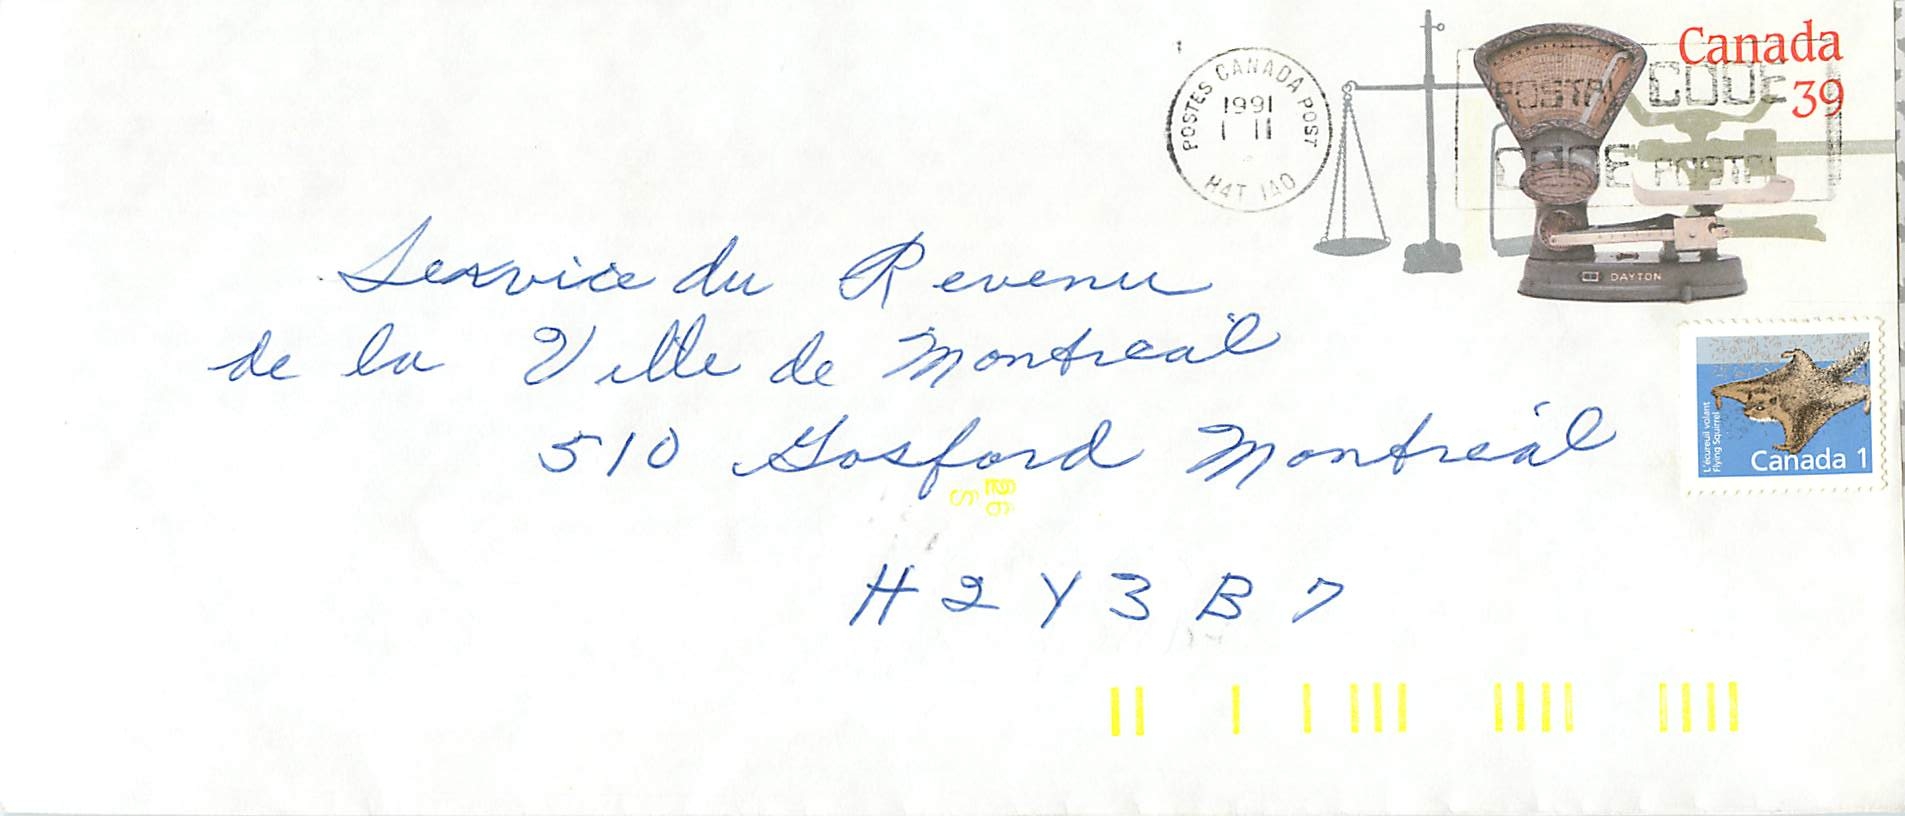 Canada
39
POSTES CANADA POST
1991
1 11
H4T 1A0
POSTAL CODE
CODE POSTAL
DAYTON
Service du Revenu
de la Ville de Montreal
510 Gosford Montréal
H2Y3B7
L'écureuil volant
Flying Squirrel
Canada 1